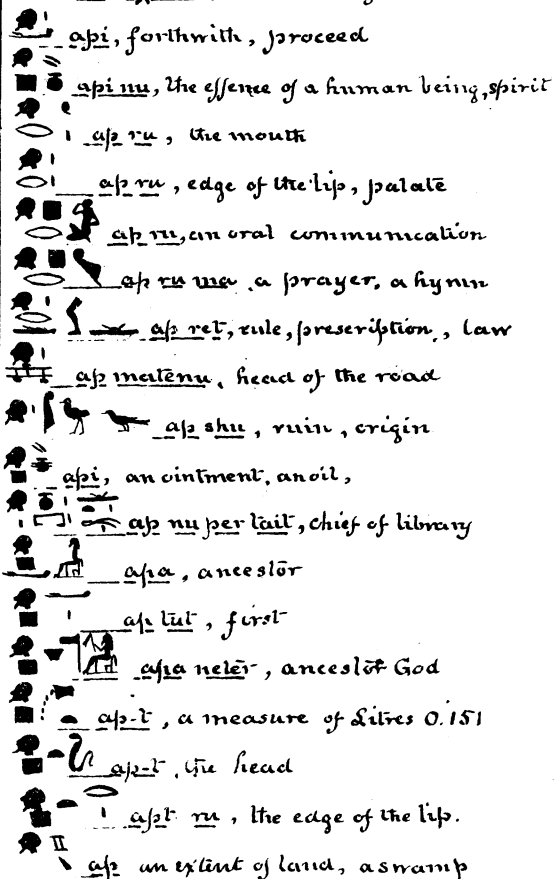 api, forthwith, proceed
api nu, the essence of a human being, spirit
ap ru, the mouth
ap ru, edge of the lip, palate
ap ru, an oral communication
ap ru ma, a prayer, a hymn
ap ret, rule, prescription, law
ap matenu, head of the road
ap shu, ruin, origin
api, an ointment, an oil,
ap nu per tait, chief of library
apa, ancestor
ap tut, first
apa neter, ancestor God
ap-t, a measure of Litres 0.151
ap-t, the head
apt ru, the edge of the lip.
ap an extent of land, a swamp